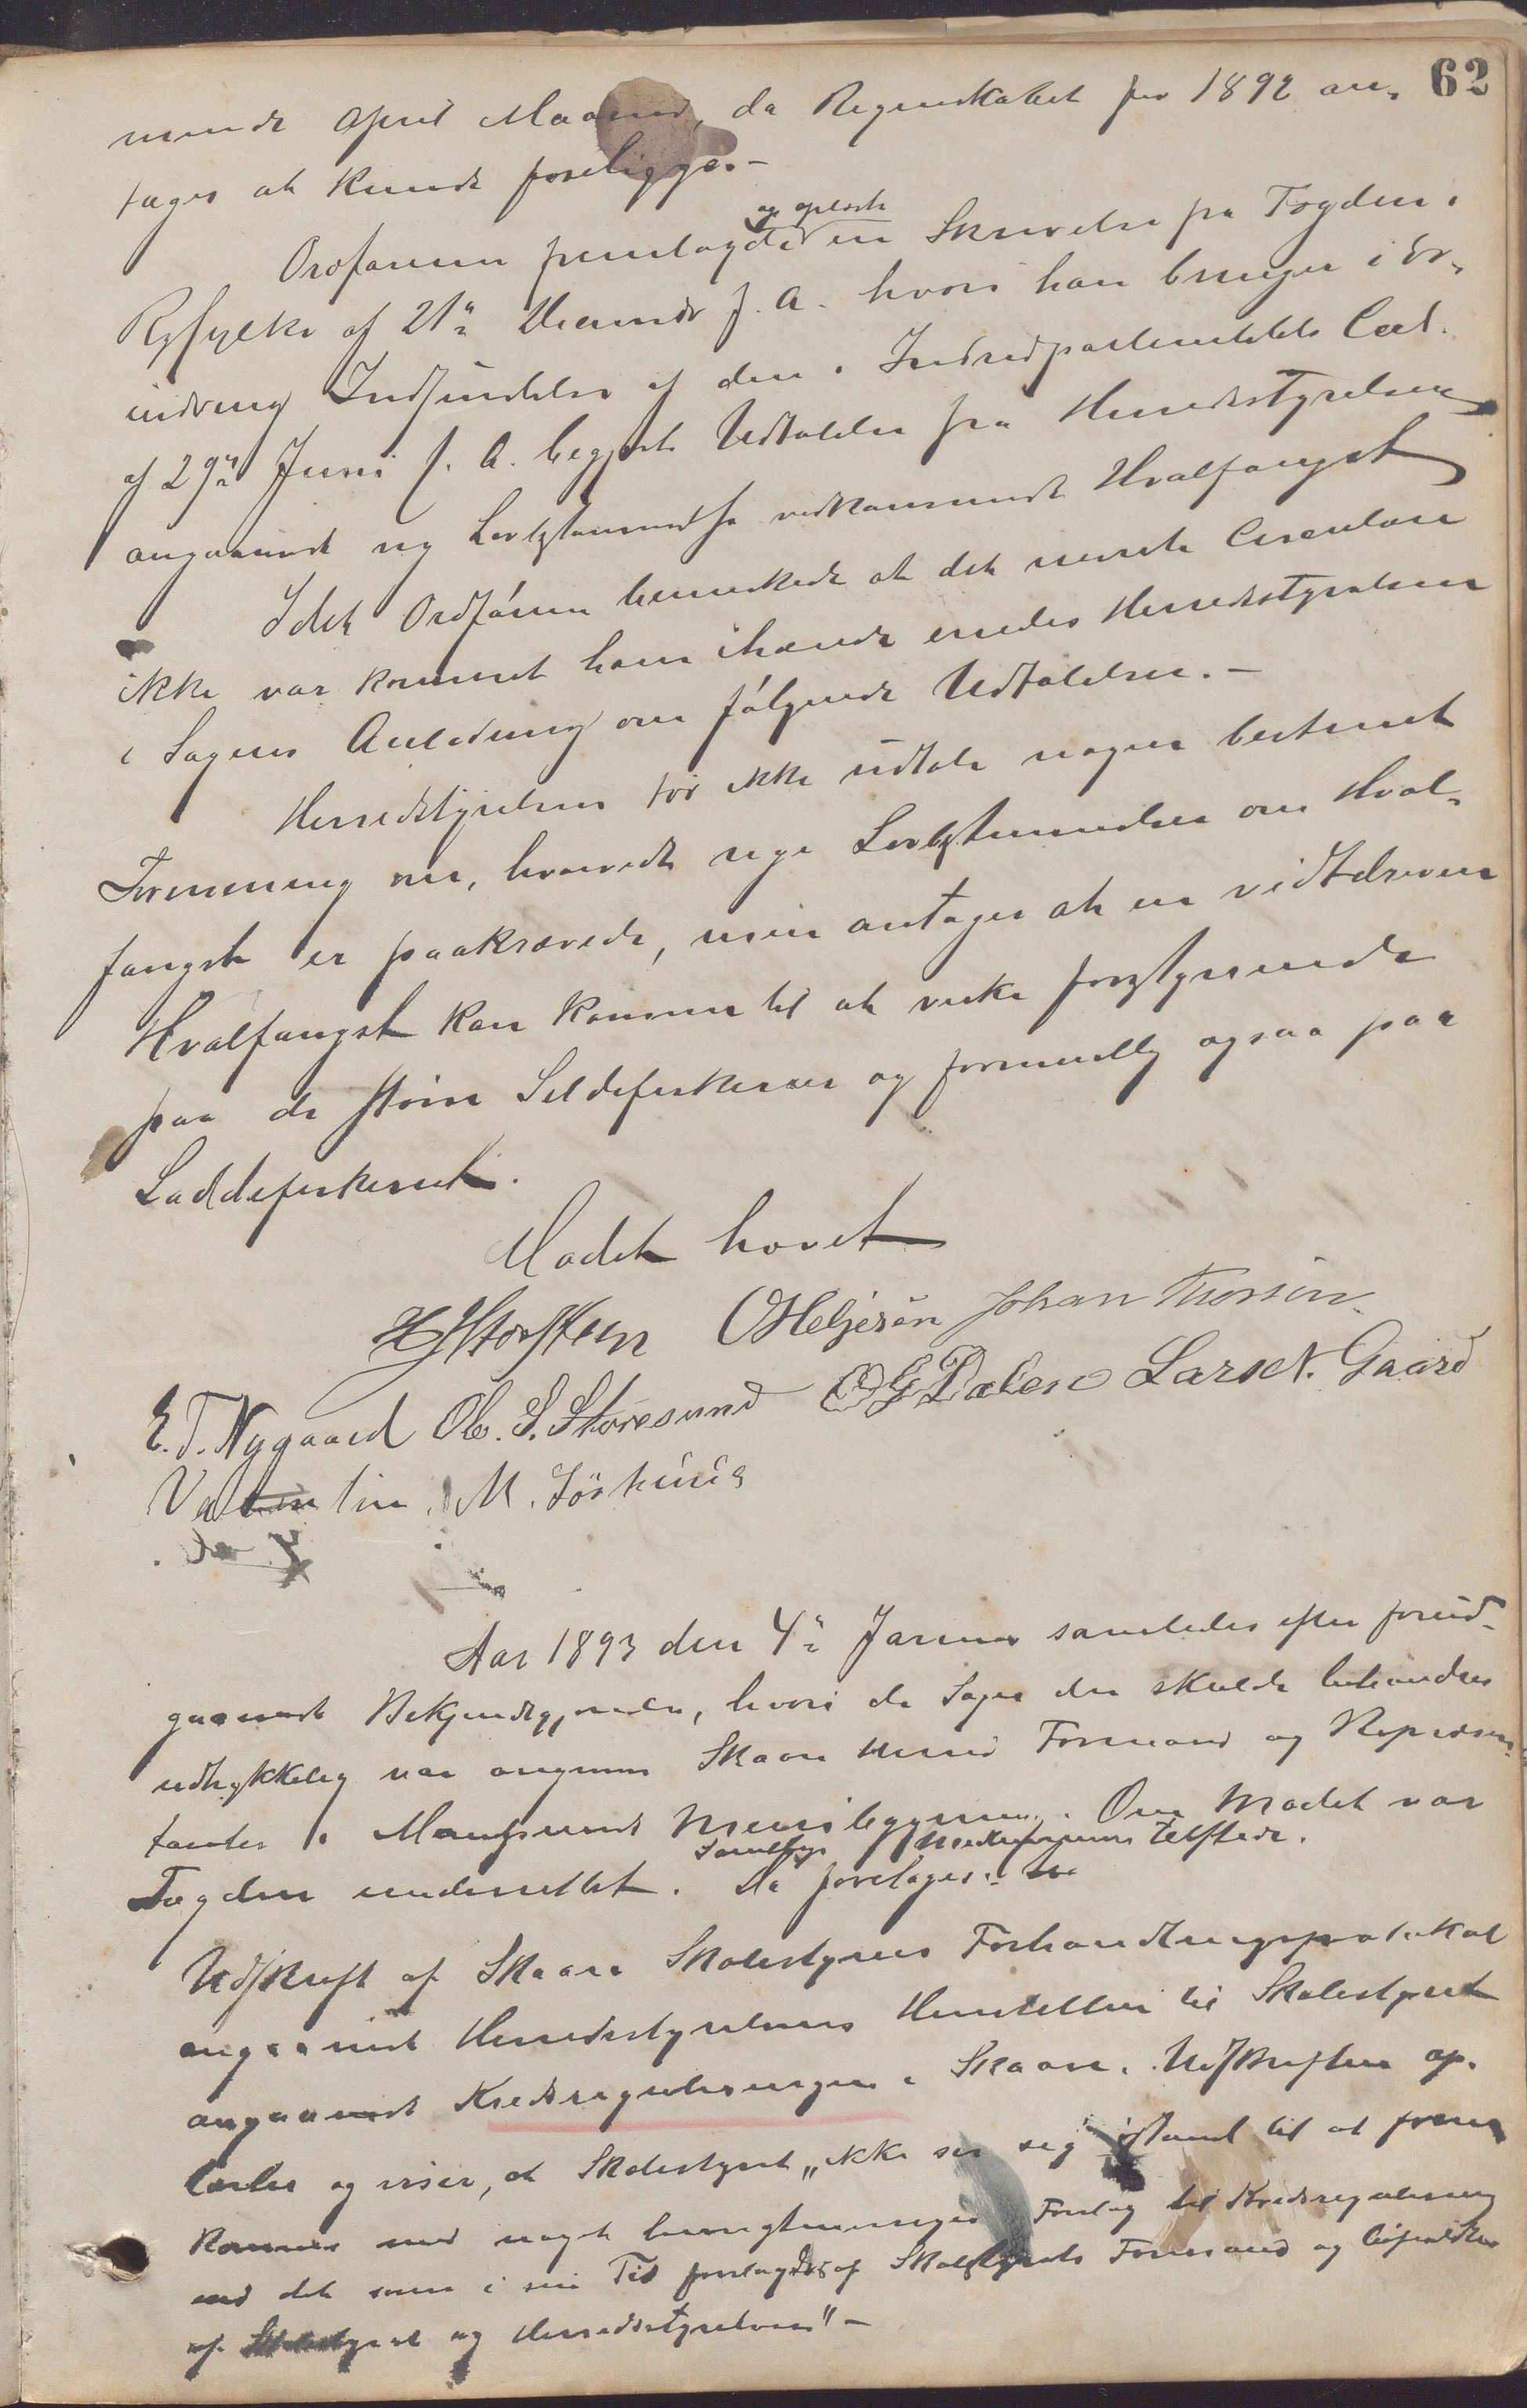 62
mende April Maaned, da Regnskabet for 1892 an-
tages at kunde foreligge.-
og oplæste
Ordføreren fremlagde en Skrivelse fra Fogden i
Ryfylke af 21de f. A. hvori han bringer i Er-
indring Indsendelse af den i Indredepartementets Circ.
af 29de Juni f. A. begjærte Udtalelse fra Herredsstyrelsen
angaaende ny Lovbestemmelse vedkommende Hvalfangst
Idet Ordføreren bemerkede at det nævnte Circulære
ikke var kommet ham ihænde enedes Herredsstyrelsen
i Sagens Anledning om følgende Udtalelse.-
Herredsstyrelsen tør ikke udtale nogen bestemt
Formening om, hvorvidt nye Lovbestemmelser om Hval-
fangst er paakrævede, men antager at en vidtdreven
Hvalfangst kan komme til at virke forstyrrende
paa de større Sildefiskerier og formentlig ogsaa paa
Loddefiskeriet.
Mødet hævet
Storsteen O Helgesen Johan Thorsen
E. T. Nygaard Ole. S. Storesund O G Dalen Lars N. Gaard
Valentin M. Sørhuus
Aar 1893 den 4de Januar samledes efter forud-
gaaende Bekjendtgjørelse, hvori de Sager der skulde behandles
udtrykkelig var angivne Skaare Herred Formænd og Repræsen-
tanter i . Om Mødet var
Samtlige Medlemmer tilstede.
Fogden underrettet. Da foretoges:
Udskrift af Skaare Skolestyres Forhandlingsprotokol
angaaende Herredsstyrelsens Henstillen til Skolestyret
angaaende Kredsreguleringen i Skaare. Udskriften op-
læstes og viser, at Skolestyret „ikke ser sig istand til at frem
komme med noget hensigtsmæssigere Forslag til Kredsregulering
end det som i sin Tid forelagdes af Skolestyrets Formand og
af Skolestyret og Herredsstyrelsen"-